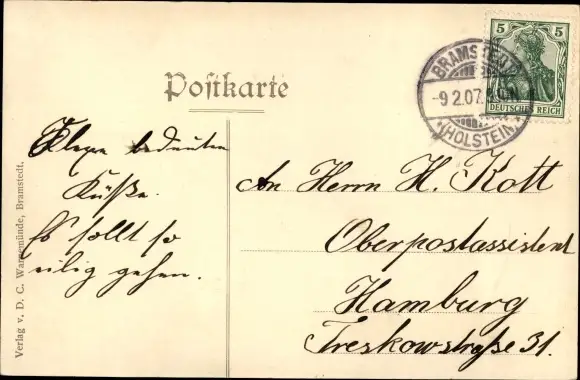 Postkarte
BRAMSTEDT
-9 2.07.
(HOLSTEIN)
5 5
DEUTSCHES REICH
bedeuten
Küße.
Es sollt so
eilig gehen.
An Herrn H. Kott
Oberpostassistent
Hamburg
Treskowstraße 31.
Verlag v. D. C. Warnemünde, Bramstedt.